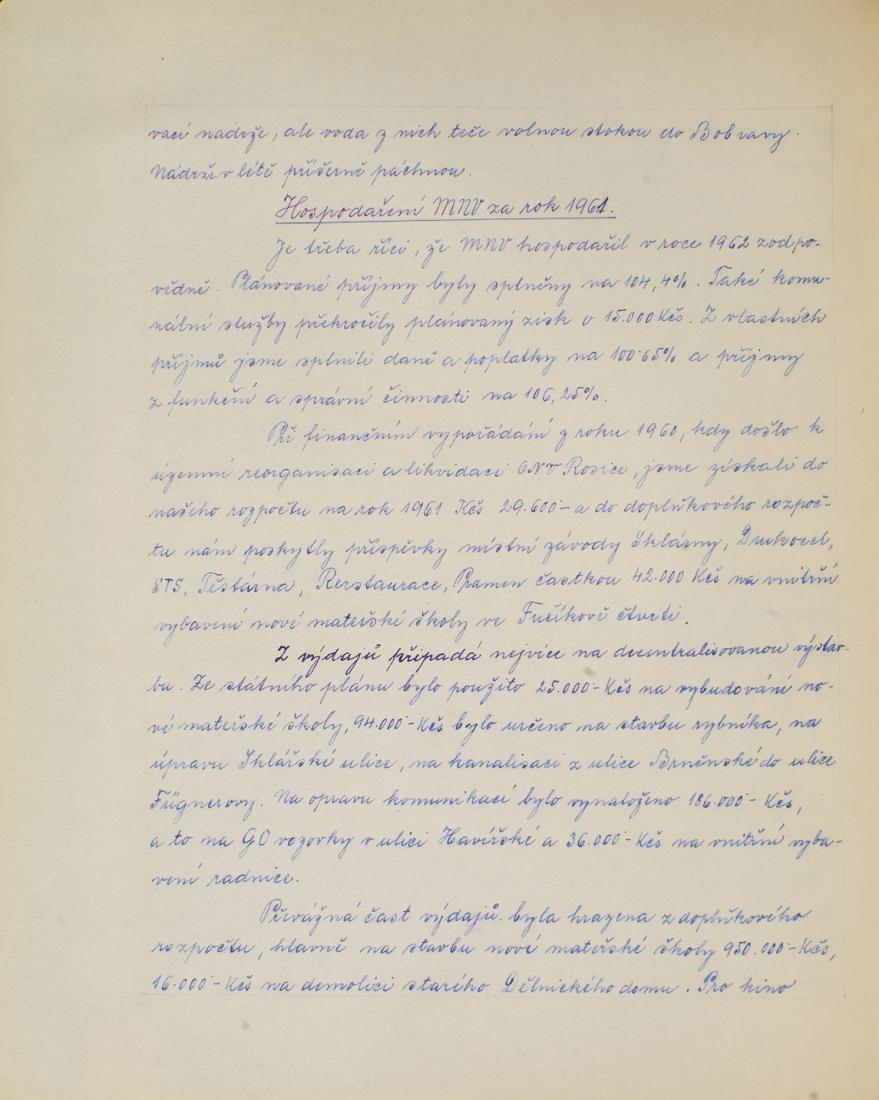 vací nadrže, ale voda z nich teče volnou stokou do Bobravy.
Nádrži v létě příšerně páchnou.
Hospodaření MNV za rok 1961.
Je třeba říci, že MNV hospodařil v roce 1962 zodpo-
vědně. Plánované příjmy byly splněny na 104,4%. Také komu-
nální služby překročily plánovaný zisk o 15.000 Kčs. Z vlastních
příjmů jsme splnili daně a poplatky na 100·65% a příjmy
z funkční a správní činnosti na 106,25%.
Při finančním vypořádání z roku 1960, kdy došlo k
územní reorganisaci a likvidaci ONV Rosice, jsme získali do
našeho rozpočtu na rok 1961 Kčs 29.600·- a do doplňkového rozpoč-
tu nám poskytly příspěvky místní závody Sklárny, Drukocel,
STS, Těstárna, Rerstaurace, Pramen častkou 42.000 Kčs na vnitřní
vybavení nové mateřské školy ve Fučíkově čtvrti.
Z výdajů připadá nejvíce na decentralisovanou výstav-
bu. Ze státního plánu bylo použito 25.000·- Kčs na vybudování no-
vé mateřské školy, 94.000·- Kčs bylo určeno na stavbu rybníka, na
úpravu Sklářské ulice, na kanalisaci z ulice Brněnské do ulice
Fügnerovy. Na opravu komunikací bylo vynaloženo 186.000·- Kčs,
a to na GO vozovky v ulici Havířské a 36.000·- Kčs na vnitřní vyba-
vení radnice.
Převážná čast výdajů byla hrazena z doplňkového
rozpočtu, hlavně na stavbu nové mateřské školy 950.000·- Kčs,
16.000·- Kčs na demolici starého Dělnického domu. Pro kino